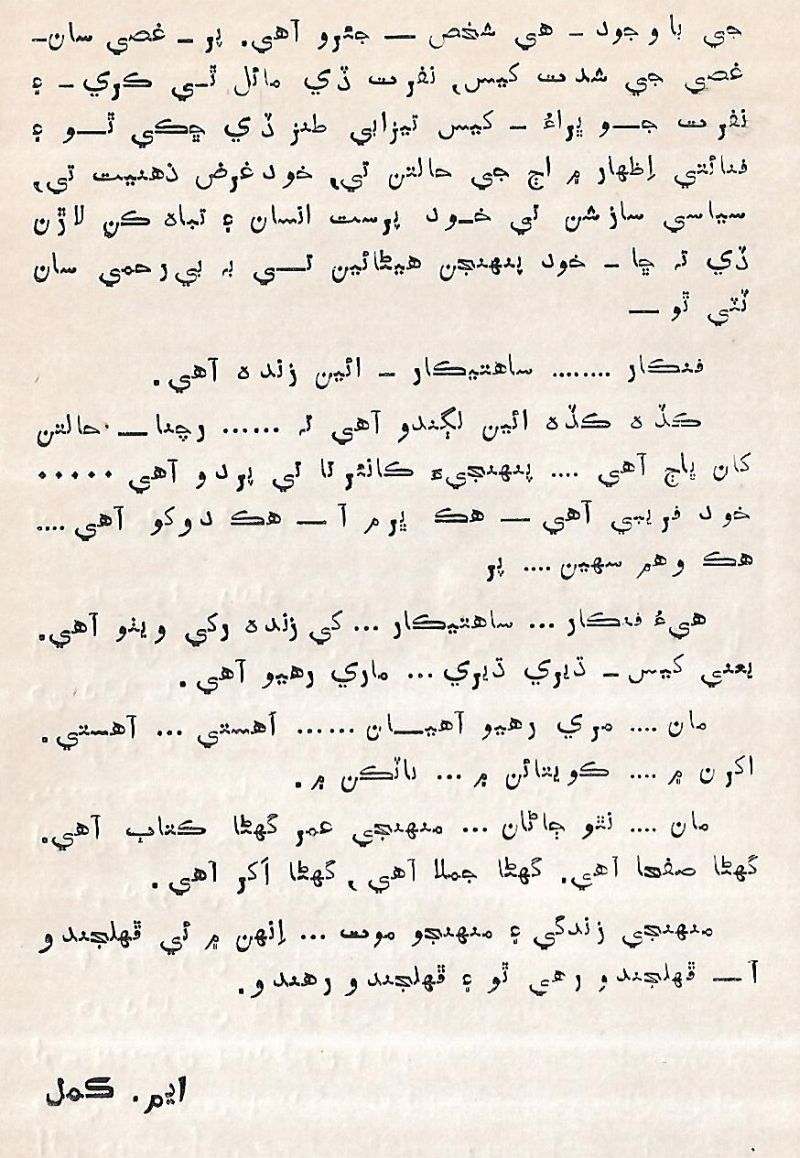 جي باوجود - هي شخص — جٿرو آهي. پر - غصي سان-
غصي جي شدت کيس، نفرت ڏي مائل ٿي ڪري - ۽
نفرت جو ڀراءُ - کيس تيزابي طنز ڏي ڇڪي ٿو ۽
فنائتي اِظهار ۾ اڄ جي حالتن تي، خود غرض ذهنيت تي،
سياسي سازشن تي خود پرست انسان ۽ تباهه ڪن لاڙن
ڏي نہ ڇا - خود پنهنجن هيڻائين تي بہ بي رحمي سان
ٽٽي ٿو —
فنڪار ........ ساهتيڪار - ائين زنده آهي.
ڪڏه ڪڏه ائين لڳندو آهي تہ ...... رچنا — حالتن
کان ڀاڄ آهي .... پنهنجيءَ ڪائرتا تي پردو آهي .....
خود فريبي آهي — هڪ ڀرم آ — هڪ دوکو آهي ....
هڪ وهم سهين .... پر
هيءُ فنڪار ... ساهتيڪار ... کي زنده رکي ويٺو آهي.
يعني کيس - ڌيري ڌيري ... ماري رهيو آهي.
مان .... مري رهيو آهيان ...... آهستي ... آهستي.
اکرن ۾ .... ڪويتائن ۾ ... ناٽڪن ۾.
مان .... نٿو ڄاڻان ... منهنجي عمر گهڻا ڪتاب آهي.
گهڻا صفحا آهي. گهڻا جملا آهي، گهڻا اَکر آهي.
منهنجي زندگي ۽ منهنجو موت ... اِنهن ۾ ئي ڦهلجندو
آ — ڦهلجندو رهي ٿو ۽ ڦهلجندو رهندو.
ايم. ڪمل